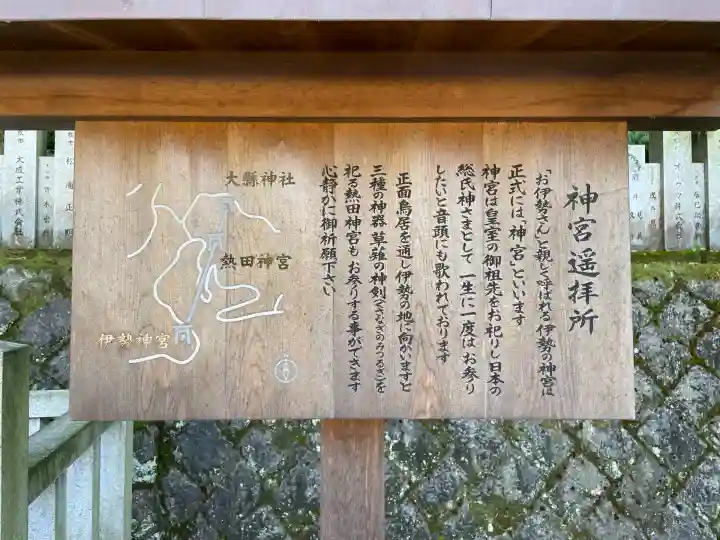 神宮遥拝所
「お伊勢さん」と親しく呼ばれる伊勢の神宮は
正式には「神宮」といいます
神宮は皇室の御祖先をお祀りし日本の
総氏神さまとして 一生に一度は お参り
したいと音頭にも歌われております
正面鳥居を通し伊勢の地に向かいますと
三種の神器 草薙の神剣(くさなぎのみつるぎ)を
祀る熱田神宮も お参りする事ができます
心静かに御祈願下さい
大縣神社
熱田神宮
伊勢神宮
大成工業株式会社
松浦正明